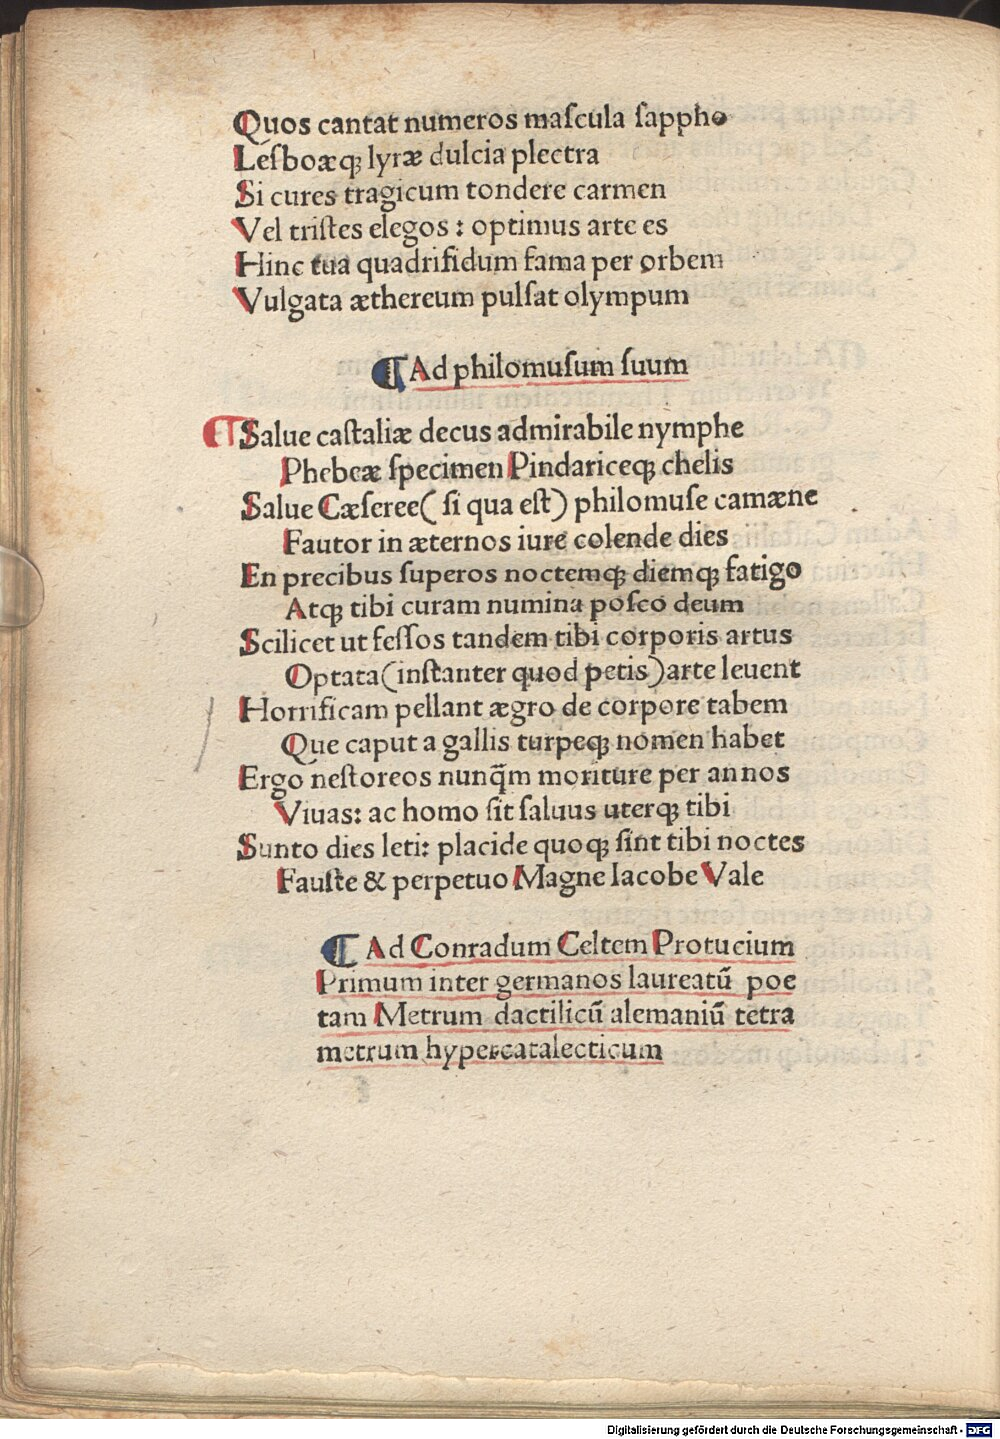 Quos cantat numeros maſcula ſappho
Leſboæqꝫ lyræ dulcia plectra
Si cures tragicum tondere carmen
Vel triſtes elegos : optimus arte es
Hinc tua quadrifidum fama per orbem
Vulgata æthereum pulſat olympum
¶ Ad philomuſum ſuum
¶ Salue caſtaliæ decus admirabile nymphe
Phebeæ ſpecimen Pindariceqꝫ chelis
Salue Cæſeree( ſi qua eſt) philomuſe camæne
Fautor in æternos iure colende dies
En precibus ſuperos noctemqꝫ diemqꝫ fatigo
Atqꝫ tibi curam numina poſco deum
Scilicet ut feſſos tandem tibi corporis artus
Optata(inſtanter quod petis)arte leuent
Horrificam pellant ægro de corpore tabem
Que caput a gallis turpeqꝫ nomen habet
Ergo neſtoreos nunq̃m moriture per annos
Viuas: ac homo ſit ſaluus uterqꝫ tibi
Sunto dies leti: placide quoqꝫ ſint tibi noctes
Fauſte & perpetuo Magne Iacobe Vale
¶ Ad Conradum Celtem Protucium
Primum inter germanos laureatū poe
tam Metrum dactilicū alemaniū tetra
metrum hypercatalecticum
Digitalisierung gefördert durch die Deutsche Forschungsgemeinschaft - DFG